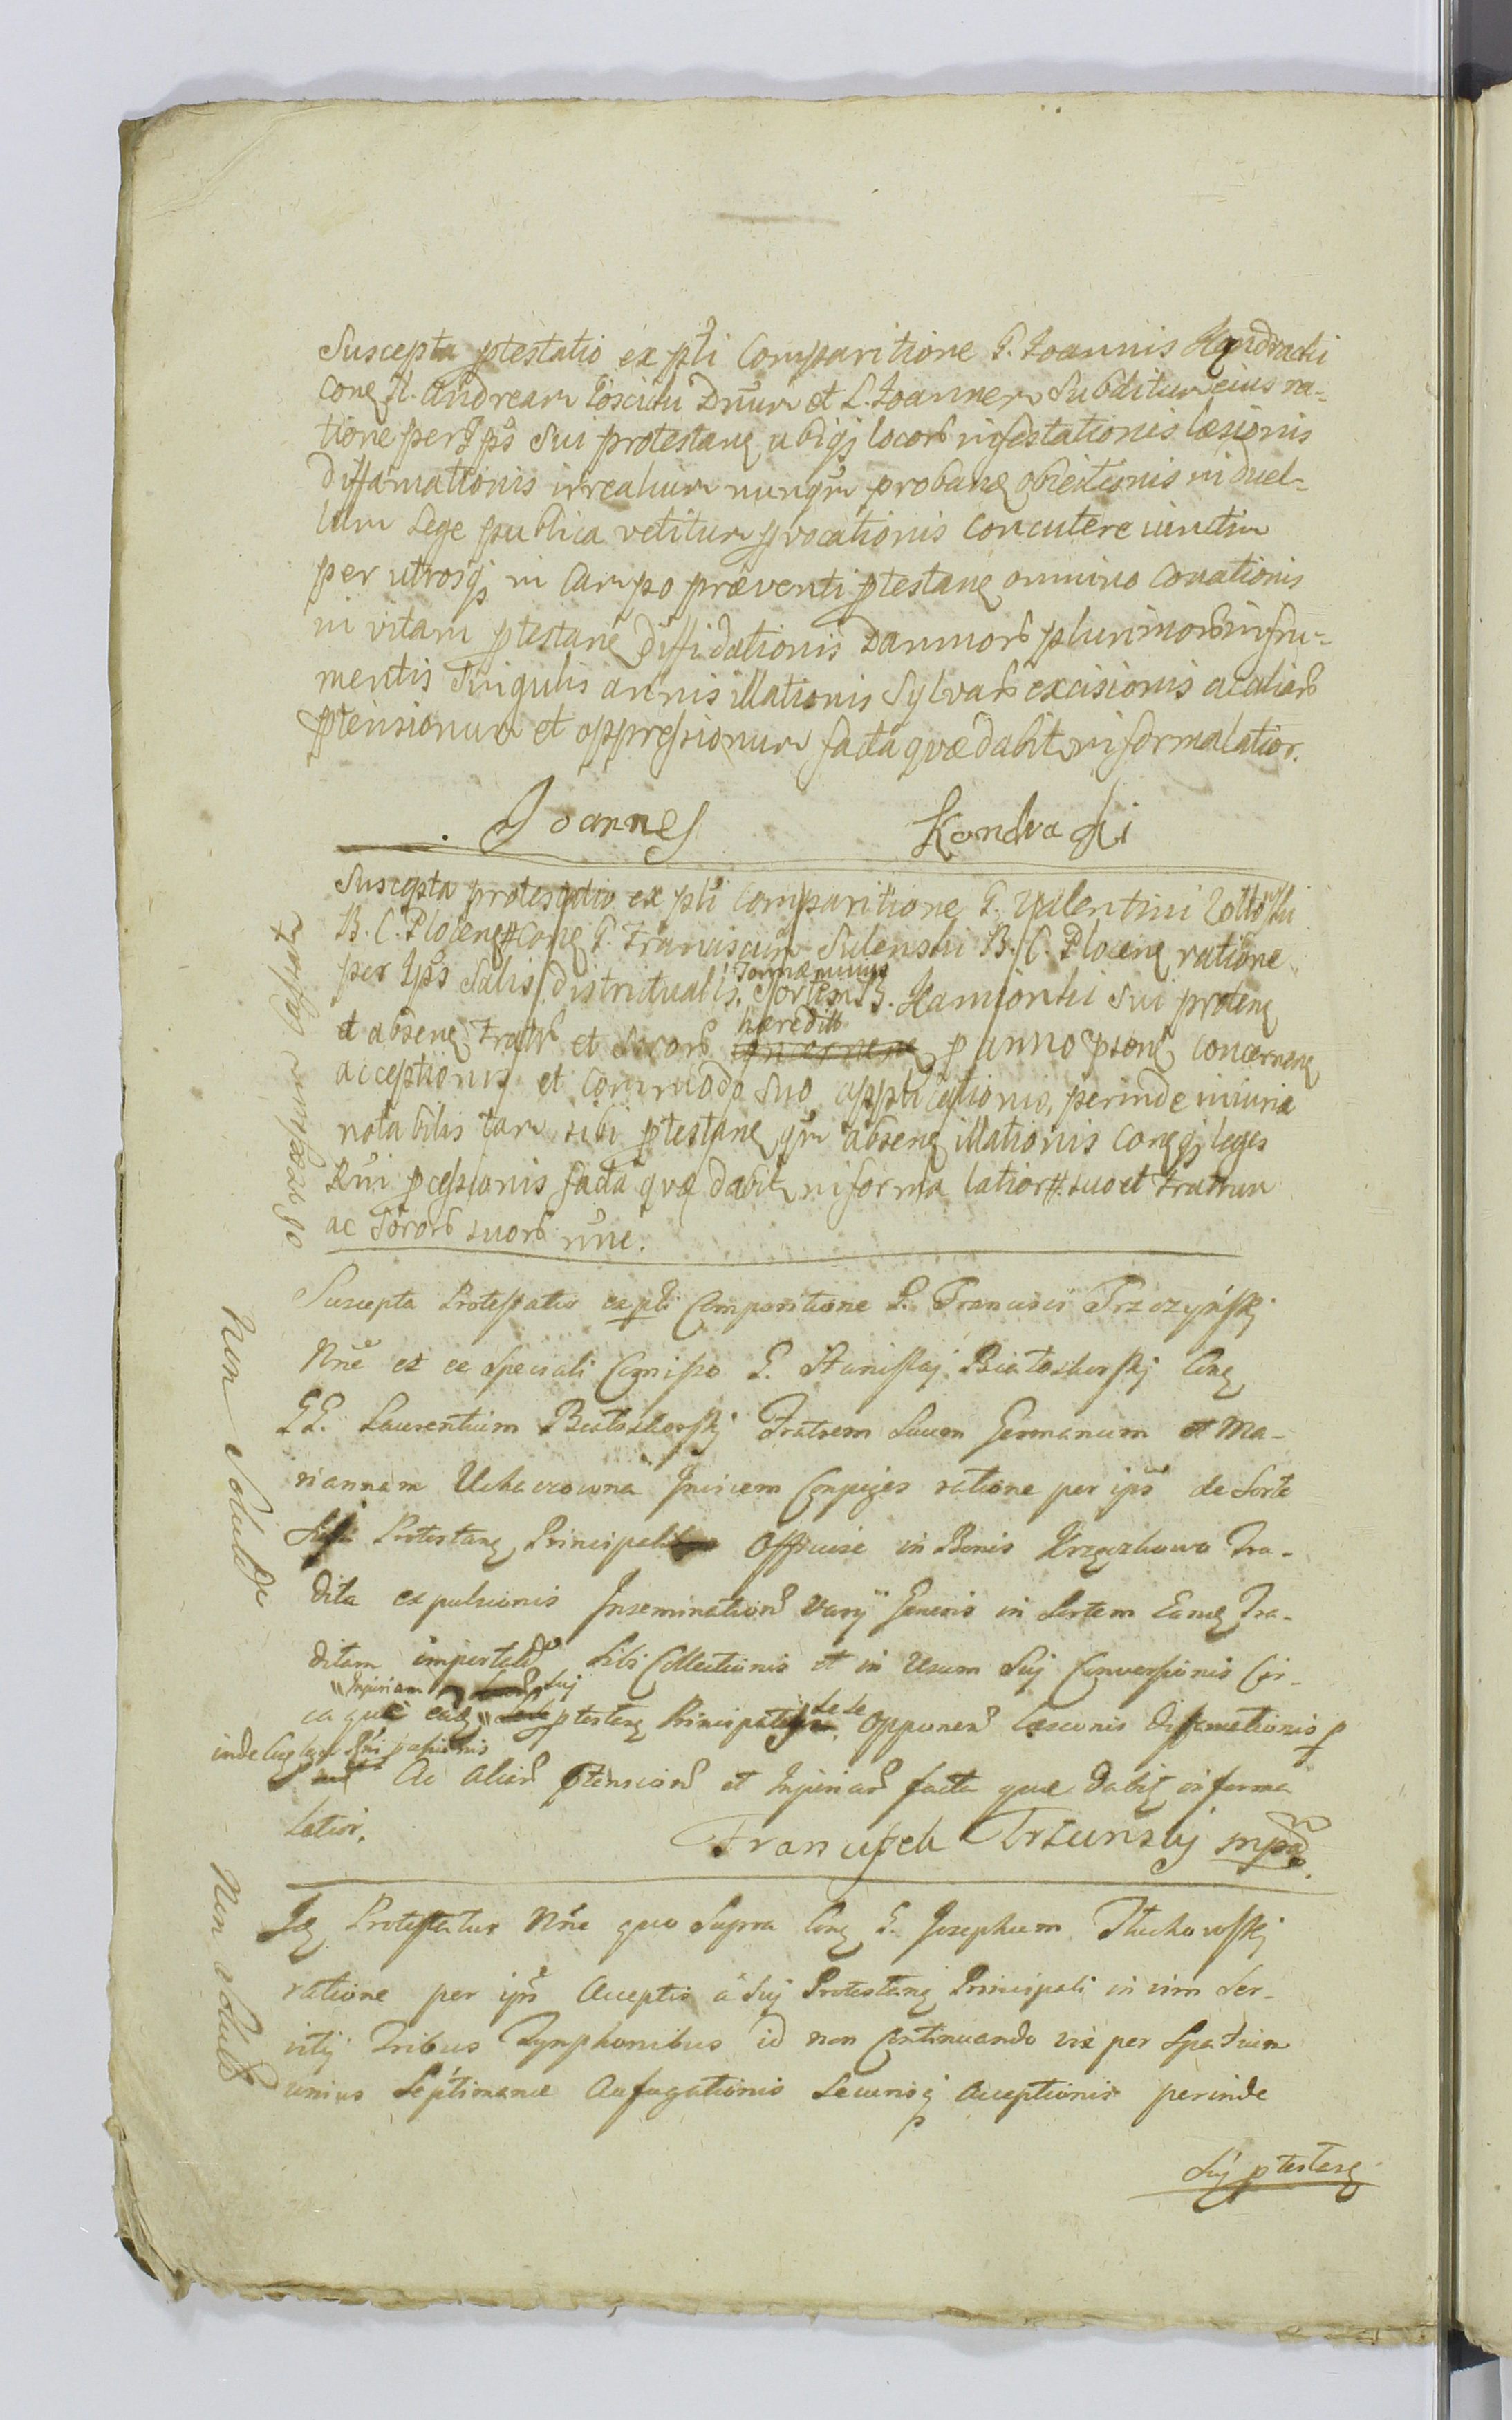 Suscepta ptestatio ex pti Comparitione G. Joannis Kondracki
conq N. Andream Łosicki Dnum et L. Joannem Subditum eius ra-
tione per Ips Sui protestanq ubiqj locorb infestationis læsionis
diffamationis irrealium nunqm probanq obiectionis in duel-
lum Lege publica vetitum pvocationis concutere
per utrosqj in Campo præventi ptestanq omnino conationis
in vitam ptestanq diffidationis Damnorb plurimorb in fru-
mentis singulis annis illationis Sylvarb excisionis ac aliarb
ptensionum et oppressionum facta quæ dabit in forma latior.
Joannes Kondracki
Suscepta protestatio ex pti Comparitione G. Valentini
B. C. Plocenq # conq G. Franciscum Sulenski B. C. Plocenq ratione
per Ips Salis districtualis
Sortem B. Kamionki Sui protenq
hæredibb
et absenq Fratrb et Sororb concernenq p anno psenti concernenq
acceptionis et commodo suo applicationis, perinde iniuria
notabilis tam sibi ptestanq qm absenq illationis conqqj leges
Rni pcessionis facta quæ dabit in forma latior # suo et Fratrum
ac Sororb suorb nne.
Suscepta Protestatio ex pti Comparitione G. Francisci Trzczyńskj
Nne et ex Speciali Comisso G. Stanislaj Białoskorskj Conq
GG. Laurentium Białoskorskj Fratrem Suum Germanum et Ma-
riannam Uchaczowna Invicem Conjuges ratione per ips de Sorte
Protestanq Principali Officiose in Bonis Krzęczkowo Tra-
dita expulsionis Inseminationb varÿ Generis in Sortem Eamq Tra-
ditam importatb Sibi Collectionis et in Usum Suj Conversionis Cir-
Injuriam Suj
ca quæ eadq ptestanq Principali Sese Opponenb læsionis Difamationis p
inde Conq leges Rni pasionis
Ac aliarb ptensionb et Injuriarb facta quæ dabit in forma
latior.
Franciszek Trzcinskj mpp
Idq Protestatur Nne quo Supra Conq G. Josephum Tłuchowskj
ratione per ips Acceptis a Suj Protestanq Principali in vim Ser-
vitij Tribus Tymphonibus id non Continuando vix per Spatium
unius Septimanæ Aufugationis Securisqj Acceptionis perinde
Suj ptestanq
Non Solut
Non Solut